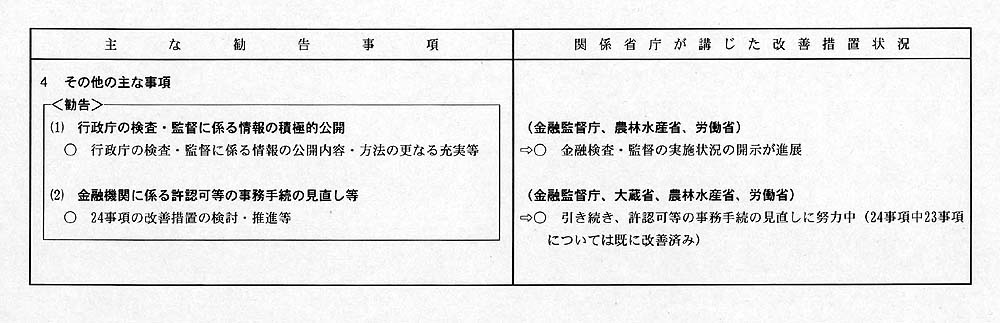 主な勧告事項
関係省庁が講じた改善措置状況
4 その他の主な事項
<勧告>
(1) 行政庁の検査・監督に係る情報の積極的公開
○ 行政庁の検査・監督に係る情報の公開内容・方法の更なる充実等
(2) 金融機関に係る許認可等の事務手続の見直し等
○ 24事項の改善措置の検討・推進等
(金融監督庁、農林水産省、労働省)
⇨○ 金融検査・監督の実施状況の開示が進展
(金融監督庁、大蔵省、農林水産省、労働省)
⇨○ 引き続き、許認可等の事務手続の見直しに努力中(24事項中23事項
については既に改善済み)